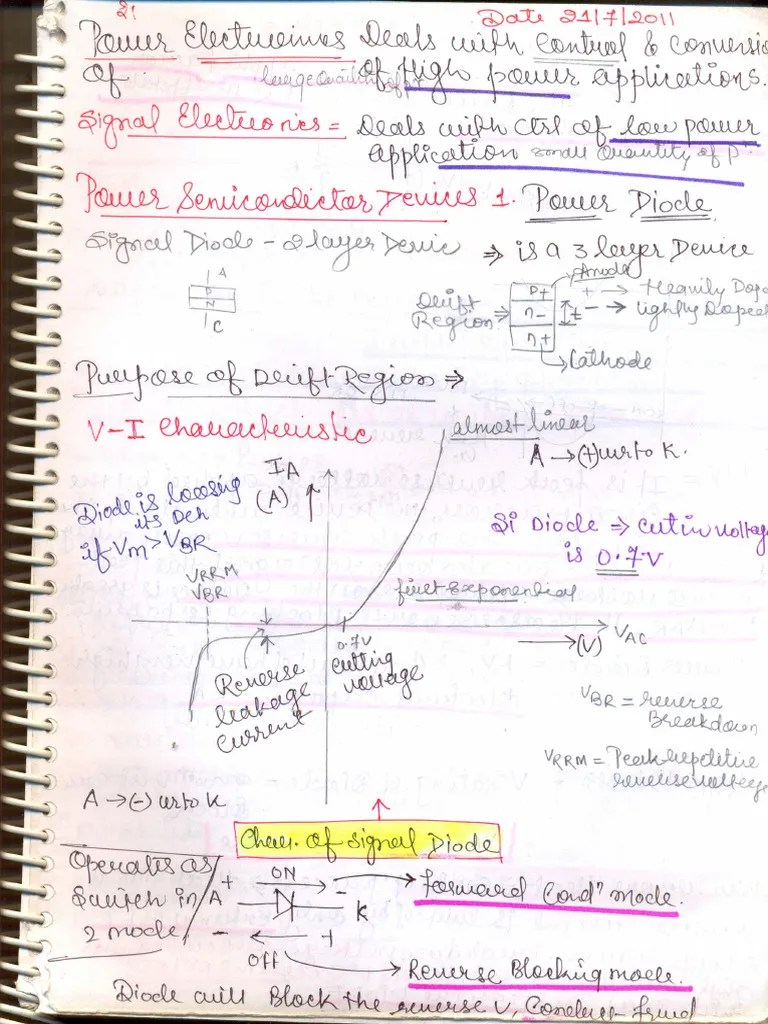 Date 21/7/2011
Power Electronics Deals with Control & Conversio
Of large quantity of p of High power applications.
Signal Electronics = Deals with Ctrl of low power
application small Quantity of P
Power Semiconductor Devices 1. Power Diode
Signal Diode - 2 layer Device ⇒ is a 3 layer Device
A
P
N
C
Anode
P+ + → Heavily Dope
Drift Region ⇒ n- t - → lightly Doped
n+
Cathode
Purpose of Drift Region ⇒
V-I Characteristic
almost linear
A → (+) wrto K.
IA
(A)
Diode is loosing
its Den
if Vm > VBR
Si Diode ⇒ cut in voltage
is 0.7V
VRRM
VBR
first exponential
0.7V
cutting
voltage
VAC
(V)
Reverse
leakage
current
VBR = reverse
Breakdown
VRRM = Peak repditive
reverse voltage
A → (-) wrto K
Char. of signal Diode
Operates as
Switch in
2 mode
ON
+ A K
- +
Off
forward Condn mode.
Reverse Blocking mode.
Diode will Block the reverse V, Conduct frwd